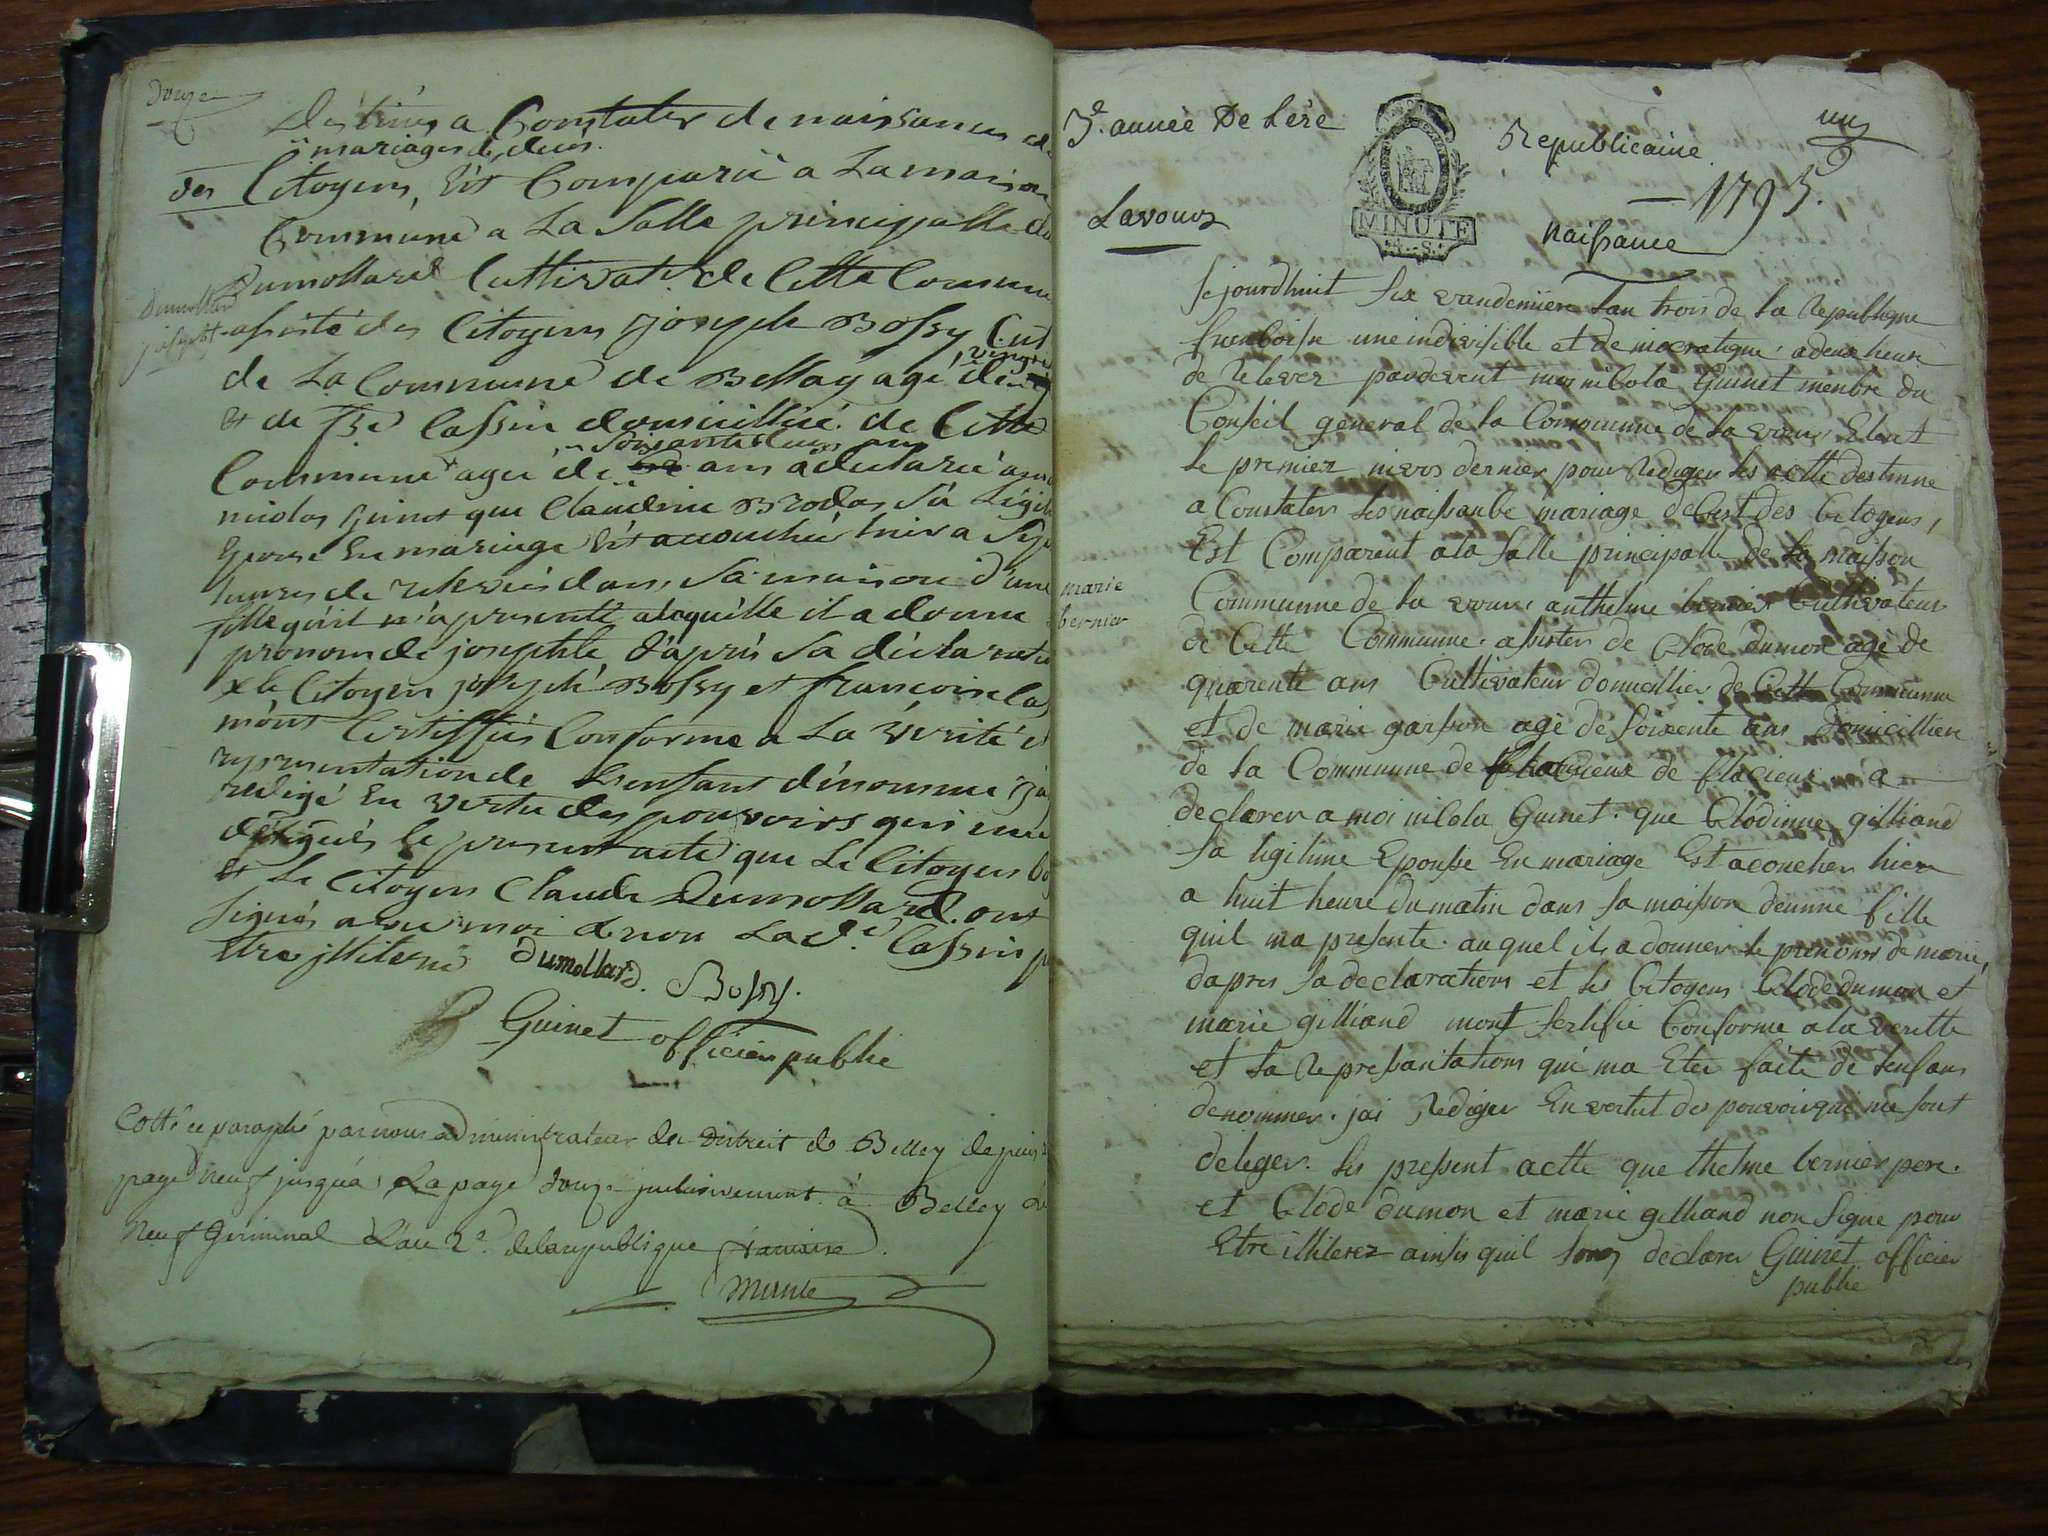 Douze
Destinés a Constater de naissances
mariages de, deces
des Citoyens, Est Comparu a La maison
Commune a La Salle principalle
Dumollard Cultivateur de Cette Commune
Dumollard
josephte
assisté des Citoyens joseph Bossy Cult
de La Commune de Bellay agé de vingt
et de Fse Cassin domicilliée de Cette
soisante deux ans
Commune agée de ans a declaré a moi
nicolas guinet que Claudine Brodos Sa Legit
Epouse En mariage Est accouchée hier a Sept
heures de relevées dans Sa maison d'une
fille qu'il m'a presenté alaquelle il a donne
pronom de josephte, d'après Sa declaration
et le Citoyen joseph Bossy et francoise Cas
m'ont Certiffiés Conforme a La verité
representation de L'enfant dénommé j'ai
redigé En vertu des pouvoirs qui me
délégués le present acte que Le Citoyen Bo
et Le Citoyen Claude Dumollard ont
Signés avec moi et non La de. Cassin p
Etre jlliterée Dumollard. Bossy.
Guinet officier public
Cotté et paraphé par nous administrateur du District de Belley depuis
page neuf jusqu'a La page douze inclusivement à Belley
Neuf Germinal L'an 2e. de la republique
3e. année De Lère Republicaine un
1795.
Lavours
MINUTE
4. S.
naissance
Se jourdhuit Six vandemiere L'an trois de la Republique
franboise une indivisible et démocratique. a deux heure
de Relevez pardevent moi nicola Guinet menbre du
Conseil general de la Communne de Lavour Elent
le premier nivos dernier pour Rediger les actte destinne
a Constater les naissanbe mariage debest des Citoyens,
Est Comparent a la Salle principalle de la maison
Communne de La vour, anthelme bernier Cultivateur
marie
bernier
de Cette Communne. assister de Clode dumon agé de
quarente ans Cultivateur domicillier de Cette Communne
et de marie garson agé de Soixente ans Domicillier
de la Communne de de flacieux a
declarer a moi nicola Guinet. que Clodinne gilliand
Sa legitime Epouse En mariage Est acoucher hier
a huit heure du matin dans Sa maison deunne fille
quil ma presente. auquel il a donner le prenoms de marie,
dapres Sa declarations et les Citoyens Clode dumon et
marie gilliand mont Sertifie Conforme a la veritte
et la Represantations qui ma Eter faite de lenfans
denommer. jai Rediger En vertut des pouvoir qui me sont
deleger. les pressent actte que thelme bernier pere.
et Clode dumon et marie gilliand non Signe pour
Etre illiterez ainsis quil declarer Guinet officier
public